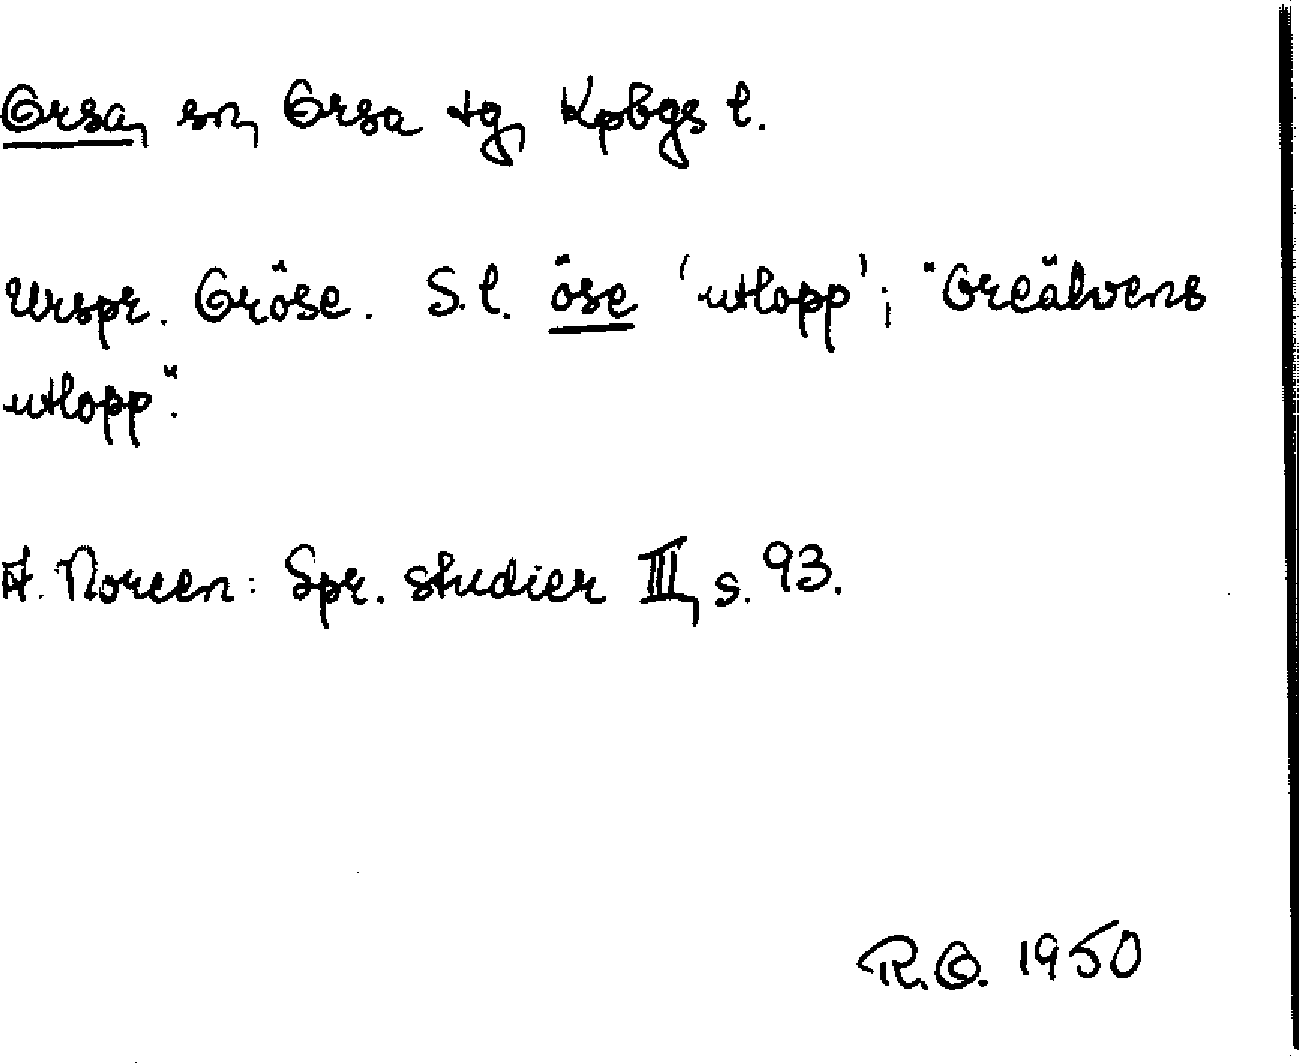 Orsa, sn, Orsa tg, Kpbgs l.
Urspr. Oröse. S.l. öse 'utlopp'; "Oreälvens
utlopp".
A. Noreen: Spr. studier III, s. 93.
R.O. 1950